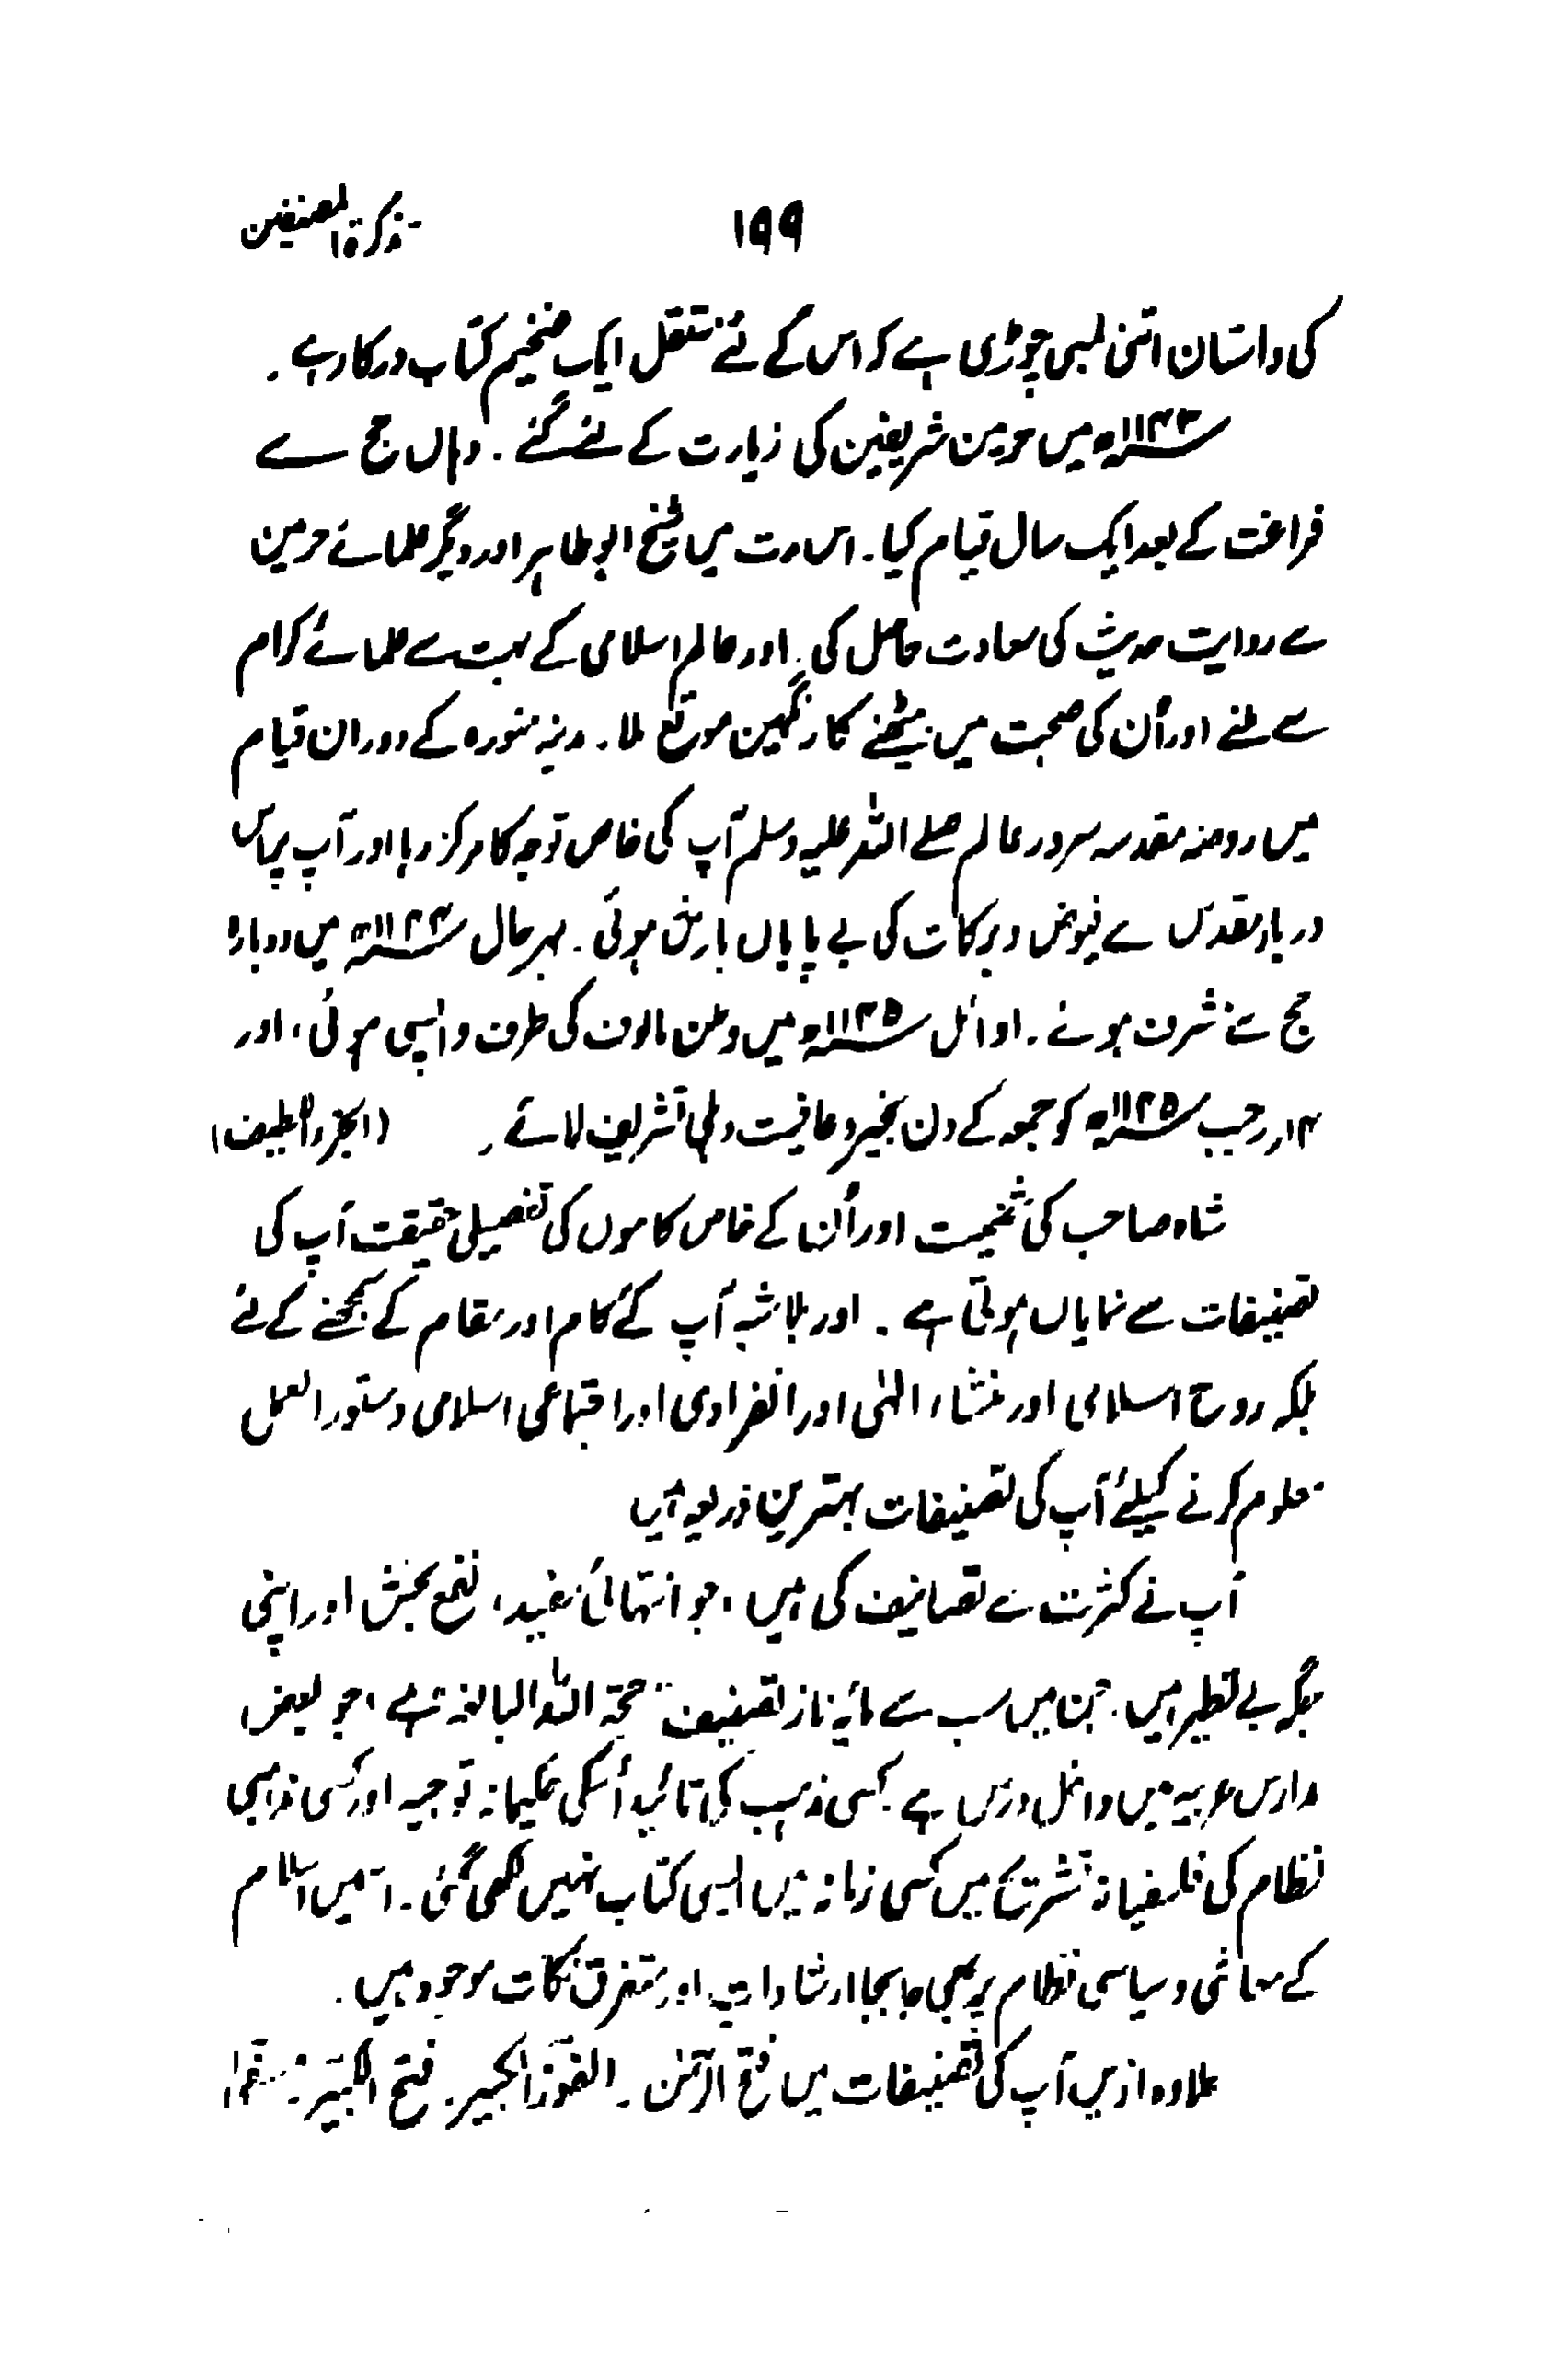 تذکرۃ المصنفین
۱۹۹
کی داستان اتنی لمبی چوڑی ہے کہ اس کے لئے مستقل ایک ضخیم کتاب درکار ہے ۔
۱۱۴۳ھ میں حرمین شریفین کی زیارت کے لئے گئے ۔ وہاں حج سے
فراغت کے بعد ایک سال قیام کیا ۔ اس مدت میں شیخ ابو طاہر اور دیگر علمائے حرمین
سے روایت حدیث کی سعادت حاصل کی ۔ اور عالم اسلامی کے بہت سے علمائے کرام
سے ملنے اور اُن کی صحبت میں بیٹھنے کا رنگین موقع ملا ۔ مدینہ منورہ کے دوران قیام
میں روضہ مقدسہ سرور عالم صلے اللہ علیہ وسلم آپ کی خاص توجہ کا مرکز رہا اور آپ پر اس
دربار مقدس سے فیوض و برکات کی بے پایاں بارش ہوئی ۔ بہر حال ۱۱۴۴ھ میں دوبارہ
حج سے مشرف ہوئے ۔ اوائل ۱۱۴۵ھ میں وطن مالوف کی طرف واپسی ہوئی ، اور
۱۴ر رجب ۱۱۴۵ھ کو جمعہ کے دن بخیر و عافیت دہلی تشریف لائے ۔ (الجزء اللطیف)
شاہ صاحب کی شخصیت اور اُن کے خاص کاموں کی تفصیلی حقیقت آپ کی
تصنیفات سے نمایاں ہوتی ہے ۔ اور بلا شبہ آپ کے کام اور مقام کے سمجھنے کے لئے
بلکہ روح اسلامی اور منشاء الہٰی اور انفرادی اور اجتماعی اسلامی دستور العمل
معلوم کرنے کیلئے آپ کی تصنیفات بہترین ذریعہ ہیں
آپ نے کثرت سے تصانیف کی ہیں ، جو انتہائی مفید ، نفع بخش اور اپنی
جگہ بے نظیر ہیں ۔ جن میں سب سے مایہ ناز تصنیف "حجۃ اللہ البالغہ" ہے ، جو بعض
مدارس عربیہ میں داخل درس ہے ۔ کسی مذہب کی تائید اُسکی حکیمانہ توجیہ اور کسی مذہبی
نظام کی فلسفیانہ تشریح میں کسی زمانہ میں ایسی کتاب نہیں لکھی گئی ۔ اسمیں اسلام
کے معاشی و سیاسی نظام پر بھی جابجا ارشادات اور متفرق نکات موجود ہیں ۔
علاوہ ازیں آپ کی تصنیفات میں فتح الرحمٰن ۔ الفوز الکبیر ۔ فتح الخبیر ۔